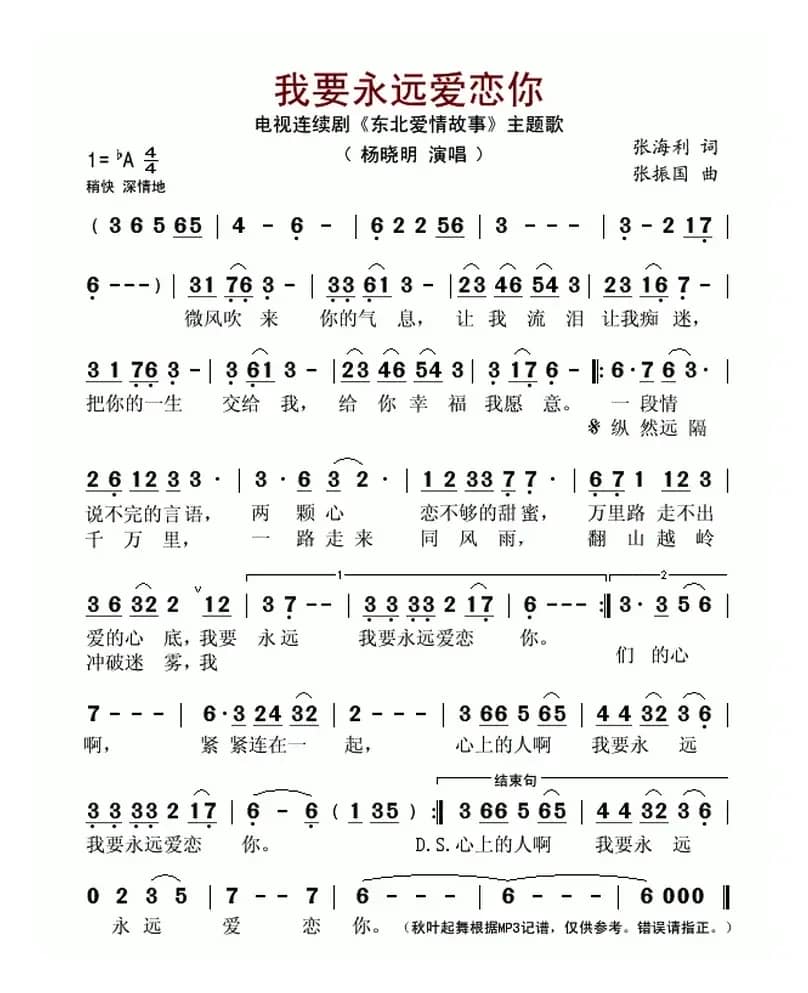 我要永远爱恋你
电视连续剧《东北爱情故事》主题歌
1=♭A 4/4
（ 杨晓明 演唱 ）
张海利 词
稍快 深情地
张振国 曲
( 3 6 5 65 | 4 - 6 - | 6 2 2 56 | 3 - - - | 3 - 2 17 |
6 - - - ) | 31 76 3 - | 33 61 3 - | 23 46 54 3 | 23 16 7 - |
微风吹 来 你的气 息， 让 我 流 泪 让我痴 迷，
3 1 76 3 - | 3 61 3 - | 23 46 54 3 | 3 17 6 - |: 6 · 7 6 3 · |
把你的一生 交给 我， 给 你 幸 福 我愿 意。 一 段情
纵 然远 隔
2 6 12 3 3 · | 3 · 6 3 2 · | 1 2 33 7 7 · | 6 7 1 12 3 |
说不完的言语， 两 颗 心 恋不够的甜蜜， 万里路 走不出
千 万 里， 一 路走来 同 风 雨， 翻 山 越 岭
1 2
3 6 32 2 ∨ 12 | 3 7 - - | 3 3 33 2 17 | 6 - - - :| 3 · 3 5 6 |
爱的心 底，我要 永远 我要永远爱恋 你。
冲破迷 雾，我 们 的心
7 - - - | 6 · 3 24 32 | 2 - - - | 3 66 5 65 | 4 4 32 3 6 |
啊， 紧 紧连在一 起， 心上的人啊 我要永 远
结束句
3 3 33 2 17 | 6 - 6 ( 1 35 ) :| 3 66 5 65 | 4 4 32 3 6 |
我要永远爱恋 你。 D.S.心上的人啊 我要永 远
0 2 3 5 | 7 - - 7 | 6 - - - | 6 - - - | 6 000 ‖
永 远 爱 恋 你。（秋叶起舞根据MP3记谱，仅供参考。错误请指正。）